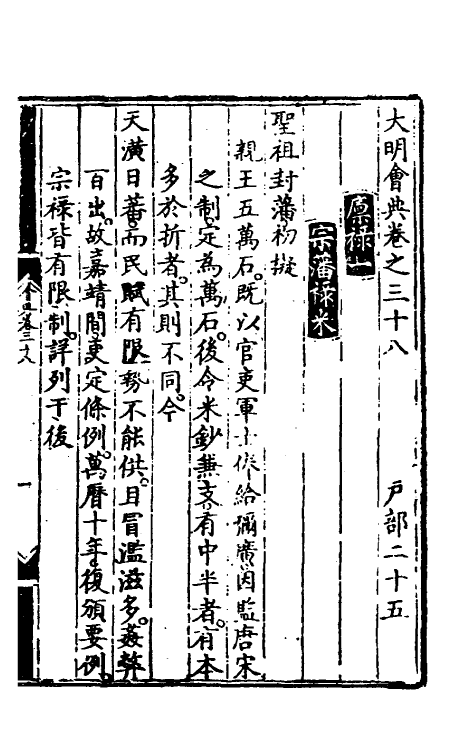 大明會典卷之三十八　戶部二十五
廩祿一
宗藩祿米
聖祖封藩初擬
親王五萬石。既以官吏軍士俸給彌廣因監唐宋
之制。定為萬石。後令米鈔兼支。有中半者。有本
多於折者。其則不同。今
天潢日蕃。而民賦有限。勢不能供。且冒濫滋多。姦弊
百出。故嘉靖間更定條例。萬曆十年。復頒要例。
宗祿皆有限制。詳列于後
一